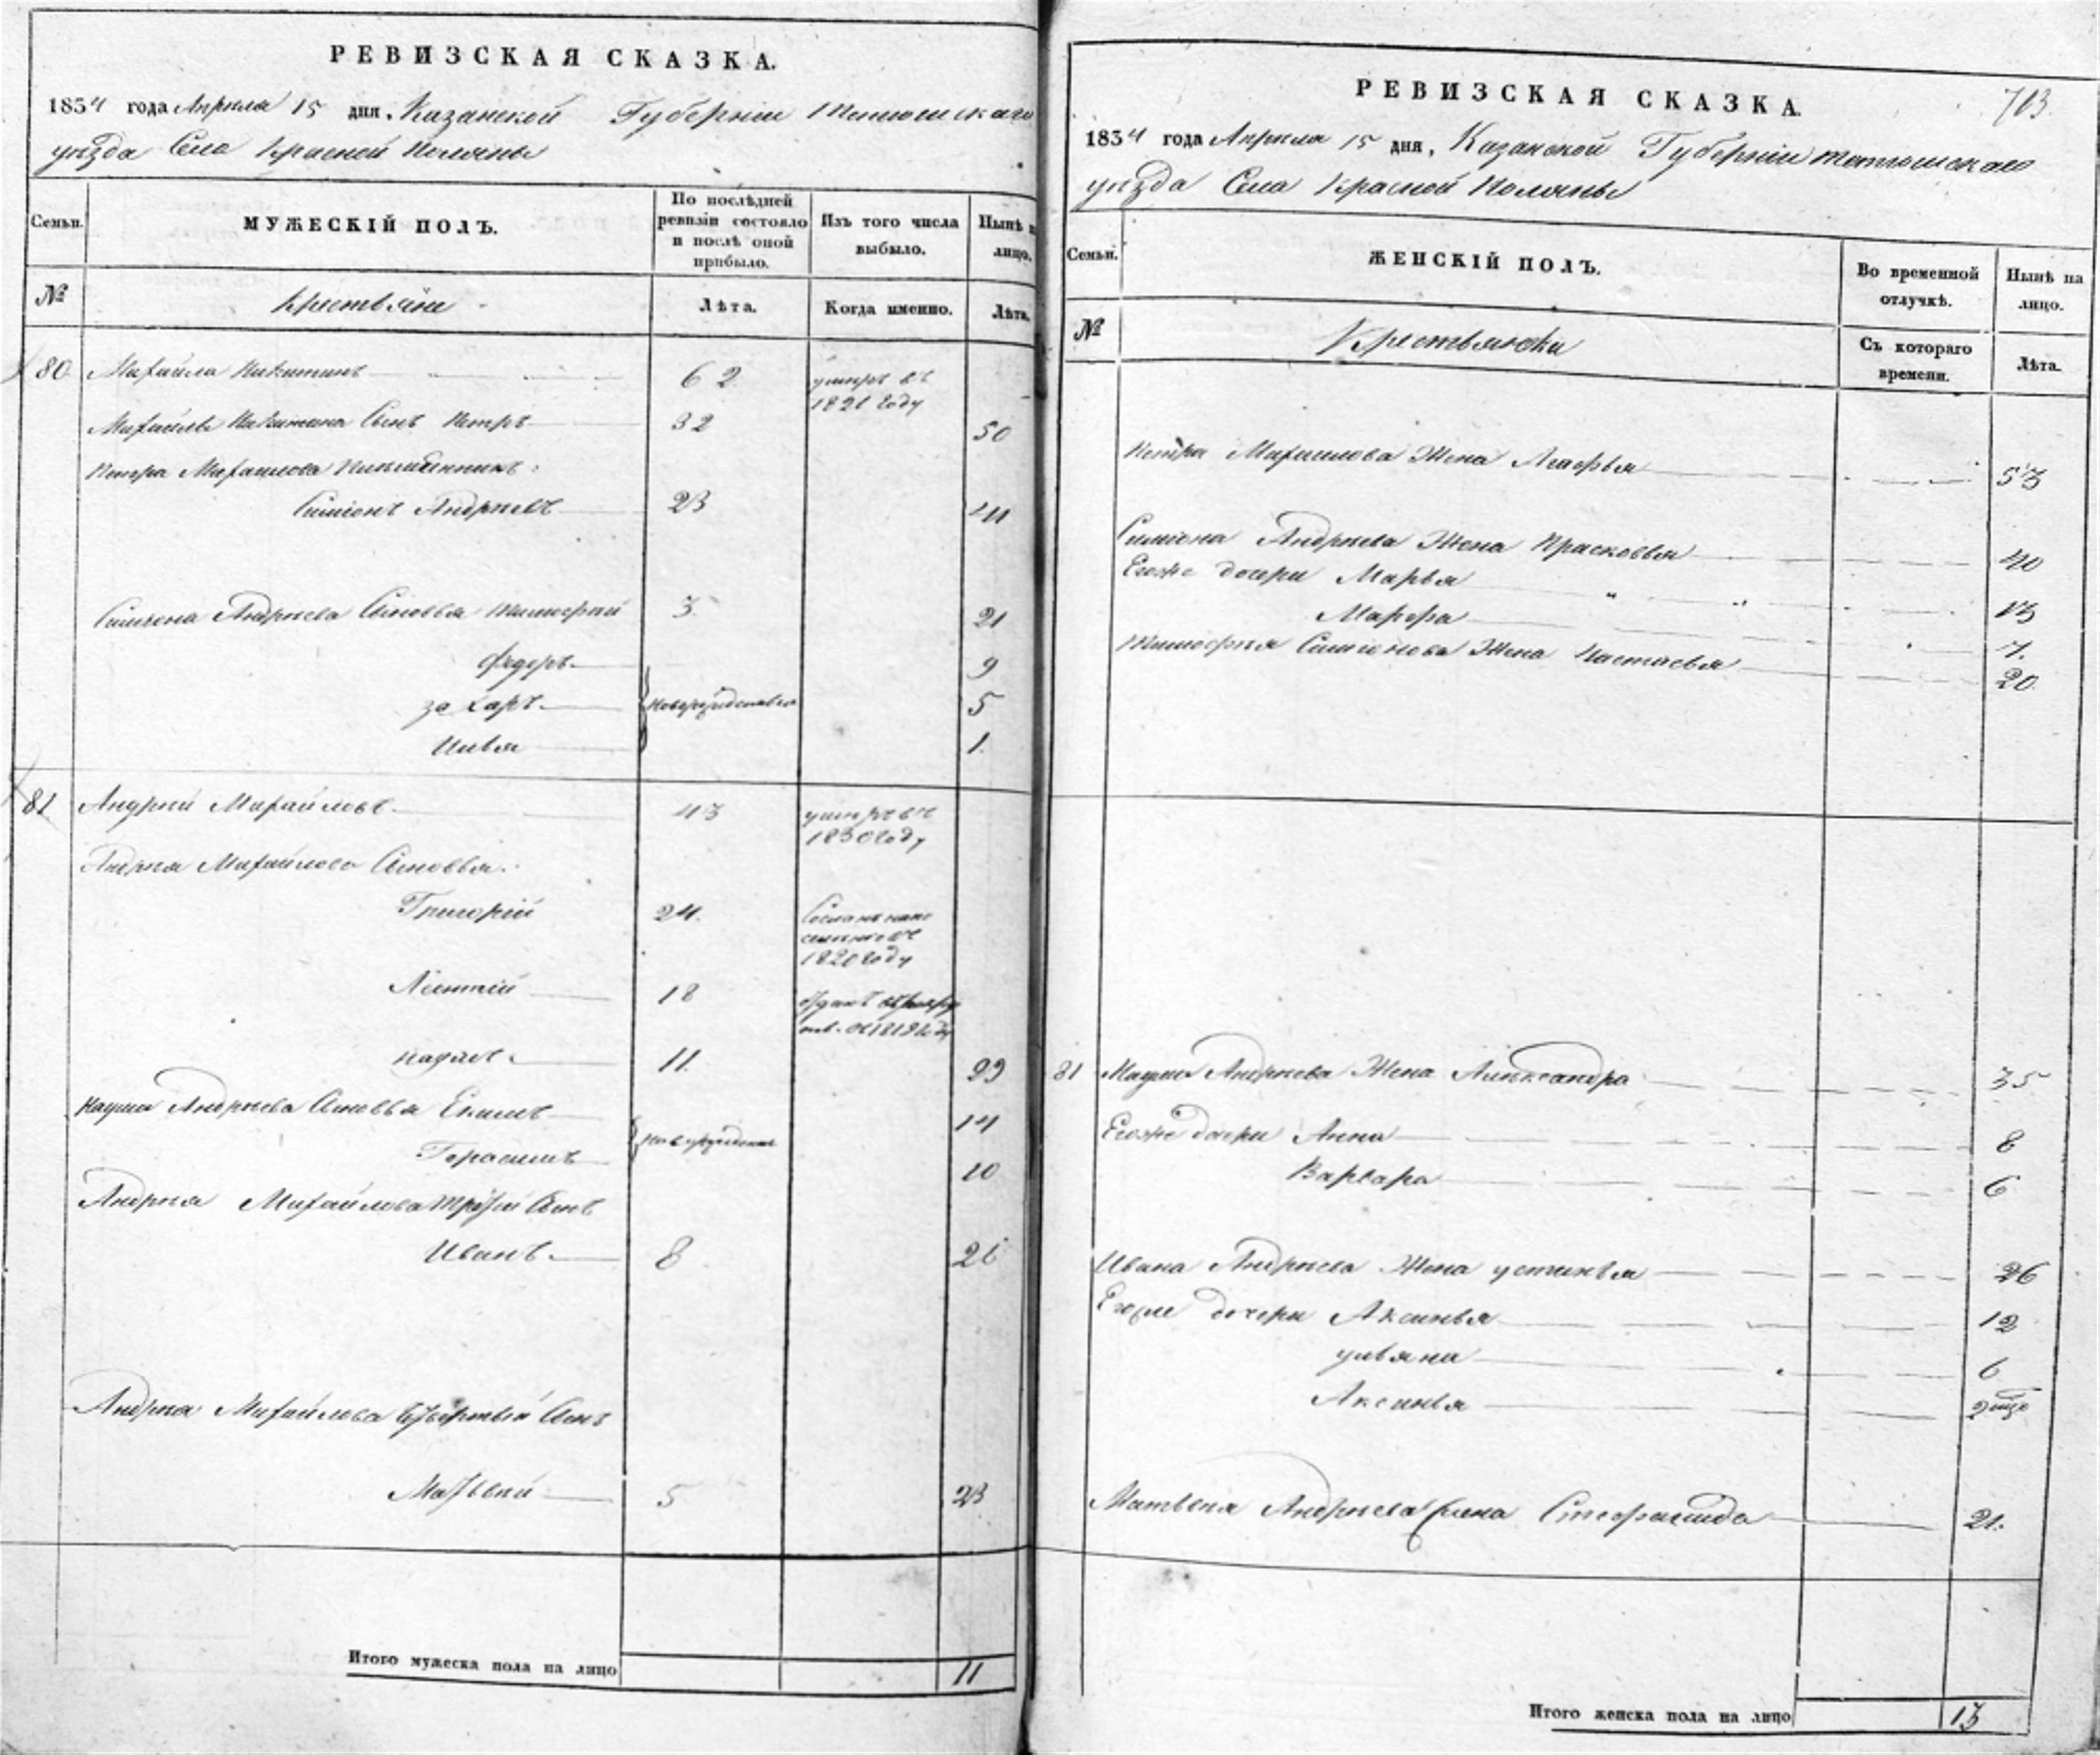 РЕВИЗСКАЯ СКАЗКА.
1834 года Апреля 15 дня, Казанской Губернии Тетюшскаго
уезда Села Красной Поляны
Семьи.
МУЖЕСКІЙ ПОЛЪ.
По послѣдней ревизіи состояло и послѣ оной прибыло.
Изъ того числа выбыло.
Нынѣ на лицо.
№
Крестьяне
Лѣта.
Когда именно.
Лѣта.
80 Михайла Никитинъ 62 умръ въ 1821 году
Михайлы Никитина Сынъ Петръ 32 50
Петра Михайлова племянникъ:
Симіонъ Андреевъ 23 41
Симиона Андреева Сыновья Тимофей 3 21
Федоръ 9
Захаръ новорожденныя 5
Илья 1.
81 Андрей Михайловъ 43 умръ въ 1830 году
Андрея Михайлова Сыновья:
Григорій 24. Сосланъ на поселение въ 1821 году
Леонтій 18 отданъ въ рекруты въ 1818 году
Наумъ 11. 29
Наума Андреева Сыновья Екимъ 14
Герасимъ новорожденныя 10
Андрея Михайлова третій Сынъ
Иванъ 8 26
Андрея Михайлова четвертый Сынъ
Матвей 5 23
Итого мужеска пола на лицо 11
РЕВИЗСКАЯ СКАЗКА.
713.
1834 года Апреля 15 дня, Казанской Губернии Тетюшскаго
уезда Села Красной Поляны
Семьи.
ЖЕНСКІЙ ПОЛЪ.
Во временной отлучкѣ.
Нынѣ на лицо.
№
Крестьянски
Съ котораго времени.
Лѣта.
Петра Михайлова Жена Агафья 53
Симиона Андреева Жена Прасковья 40
Егоже дочери Марья 13
Марфа 7.
Тимофея Симионова Жена Настасья 20
81 Наума Андреева Жена Александра 35
Егоже дочери Анна 8
Варвара 6
Ивана Андреева Жена Устинья 26
Егоже дочери Аксинья 12
Ульяна 6
Аксинья
Матвея Андреева Жена Степанида 21.
Итого женска пола на лицо 13